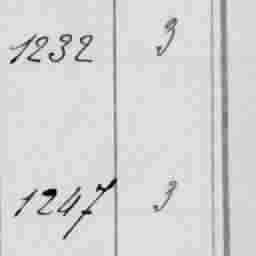 1232 3
1247 3